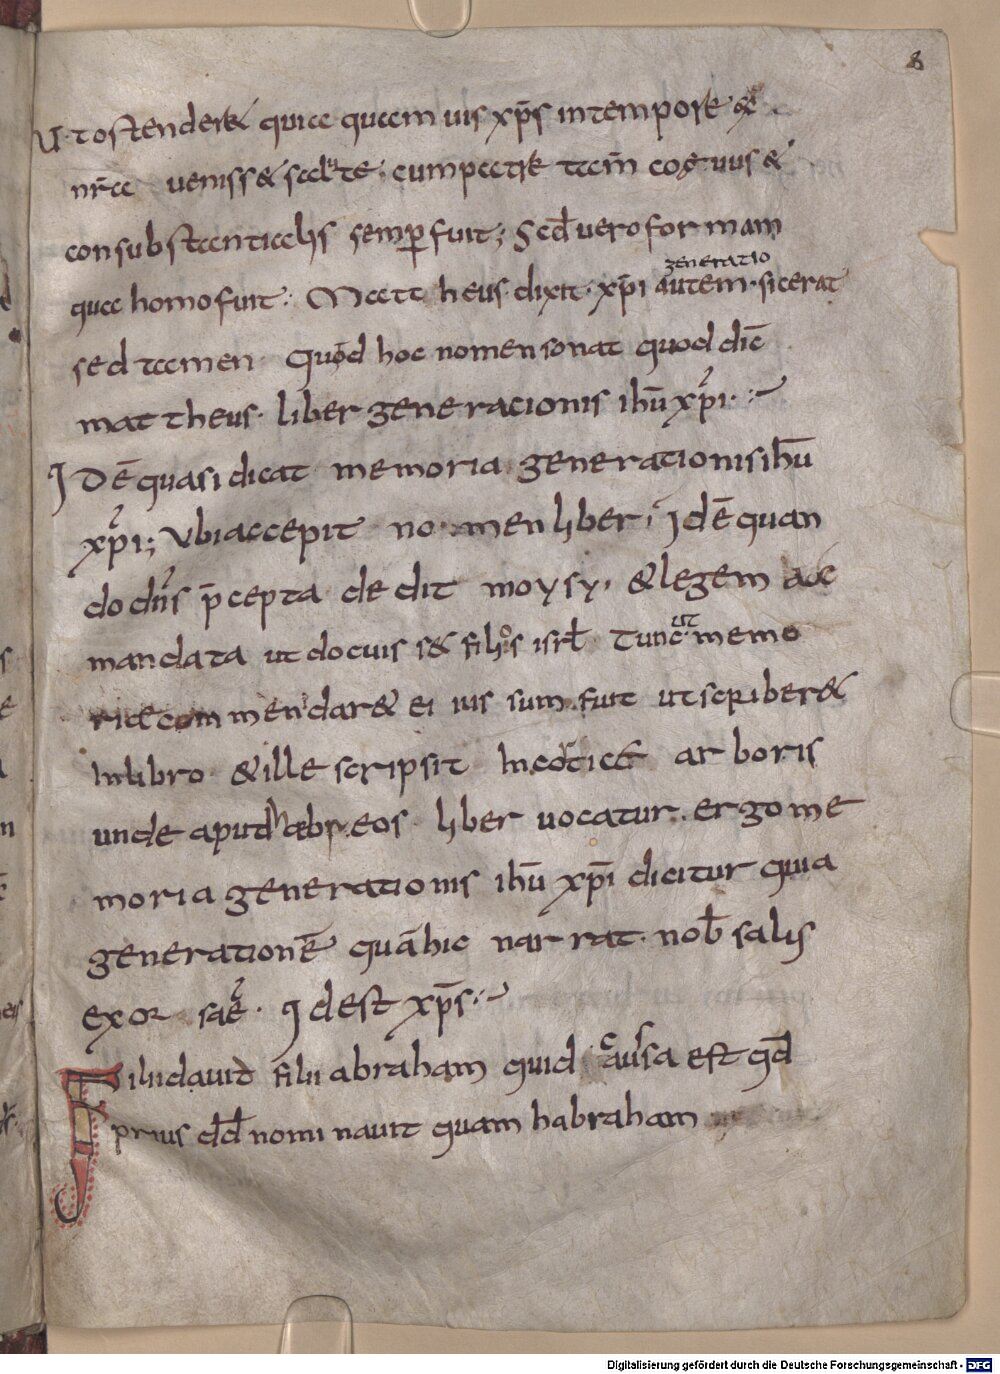 8
Ut ostenderet quia quam uis xp̄s in tempore &
nr̄ae uenisset salute. cum patre tam̄ coguus &
consubstantialis semp̲ fuit; Sed̄ uero formam
quae homo fuit. Matheus dixit. xp̄i autem. sic erat
generatio
sed tamen. Quod hoc nomen sonat quod dic̄
mattheus. liber generacionis ihū xp̄i.
Idē quasi dicat memoria generationis ihū
xp̄i; Ubi accepit nomen liber; Idē quan
do dn̄s p̄cepta dedit moysy. & legem ac
mandata ut docuisset filios isrl̄ Tunc ut memo
riae commendaret ei iussum fuit ut scriberet
in libro & ille scripsit in cortice arboris
unde apud habreos liber uocatur. ergo me
moria generationis ihū xp̄i dicitur quia
generationē quā hic narrat. nob̄ salis
exor sae. Id est xp̄s.
Filii dauid filii abraham quid causa est qd̄
prius dd̄ nominauit quam habraham
Digitalisierung gefördert durch die Deutsche Forschungsgemeinschaft - DFG